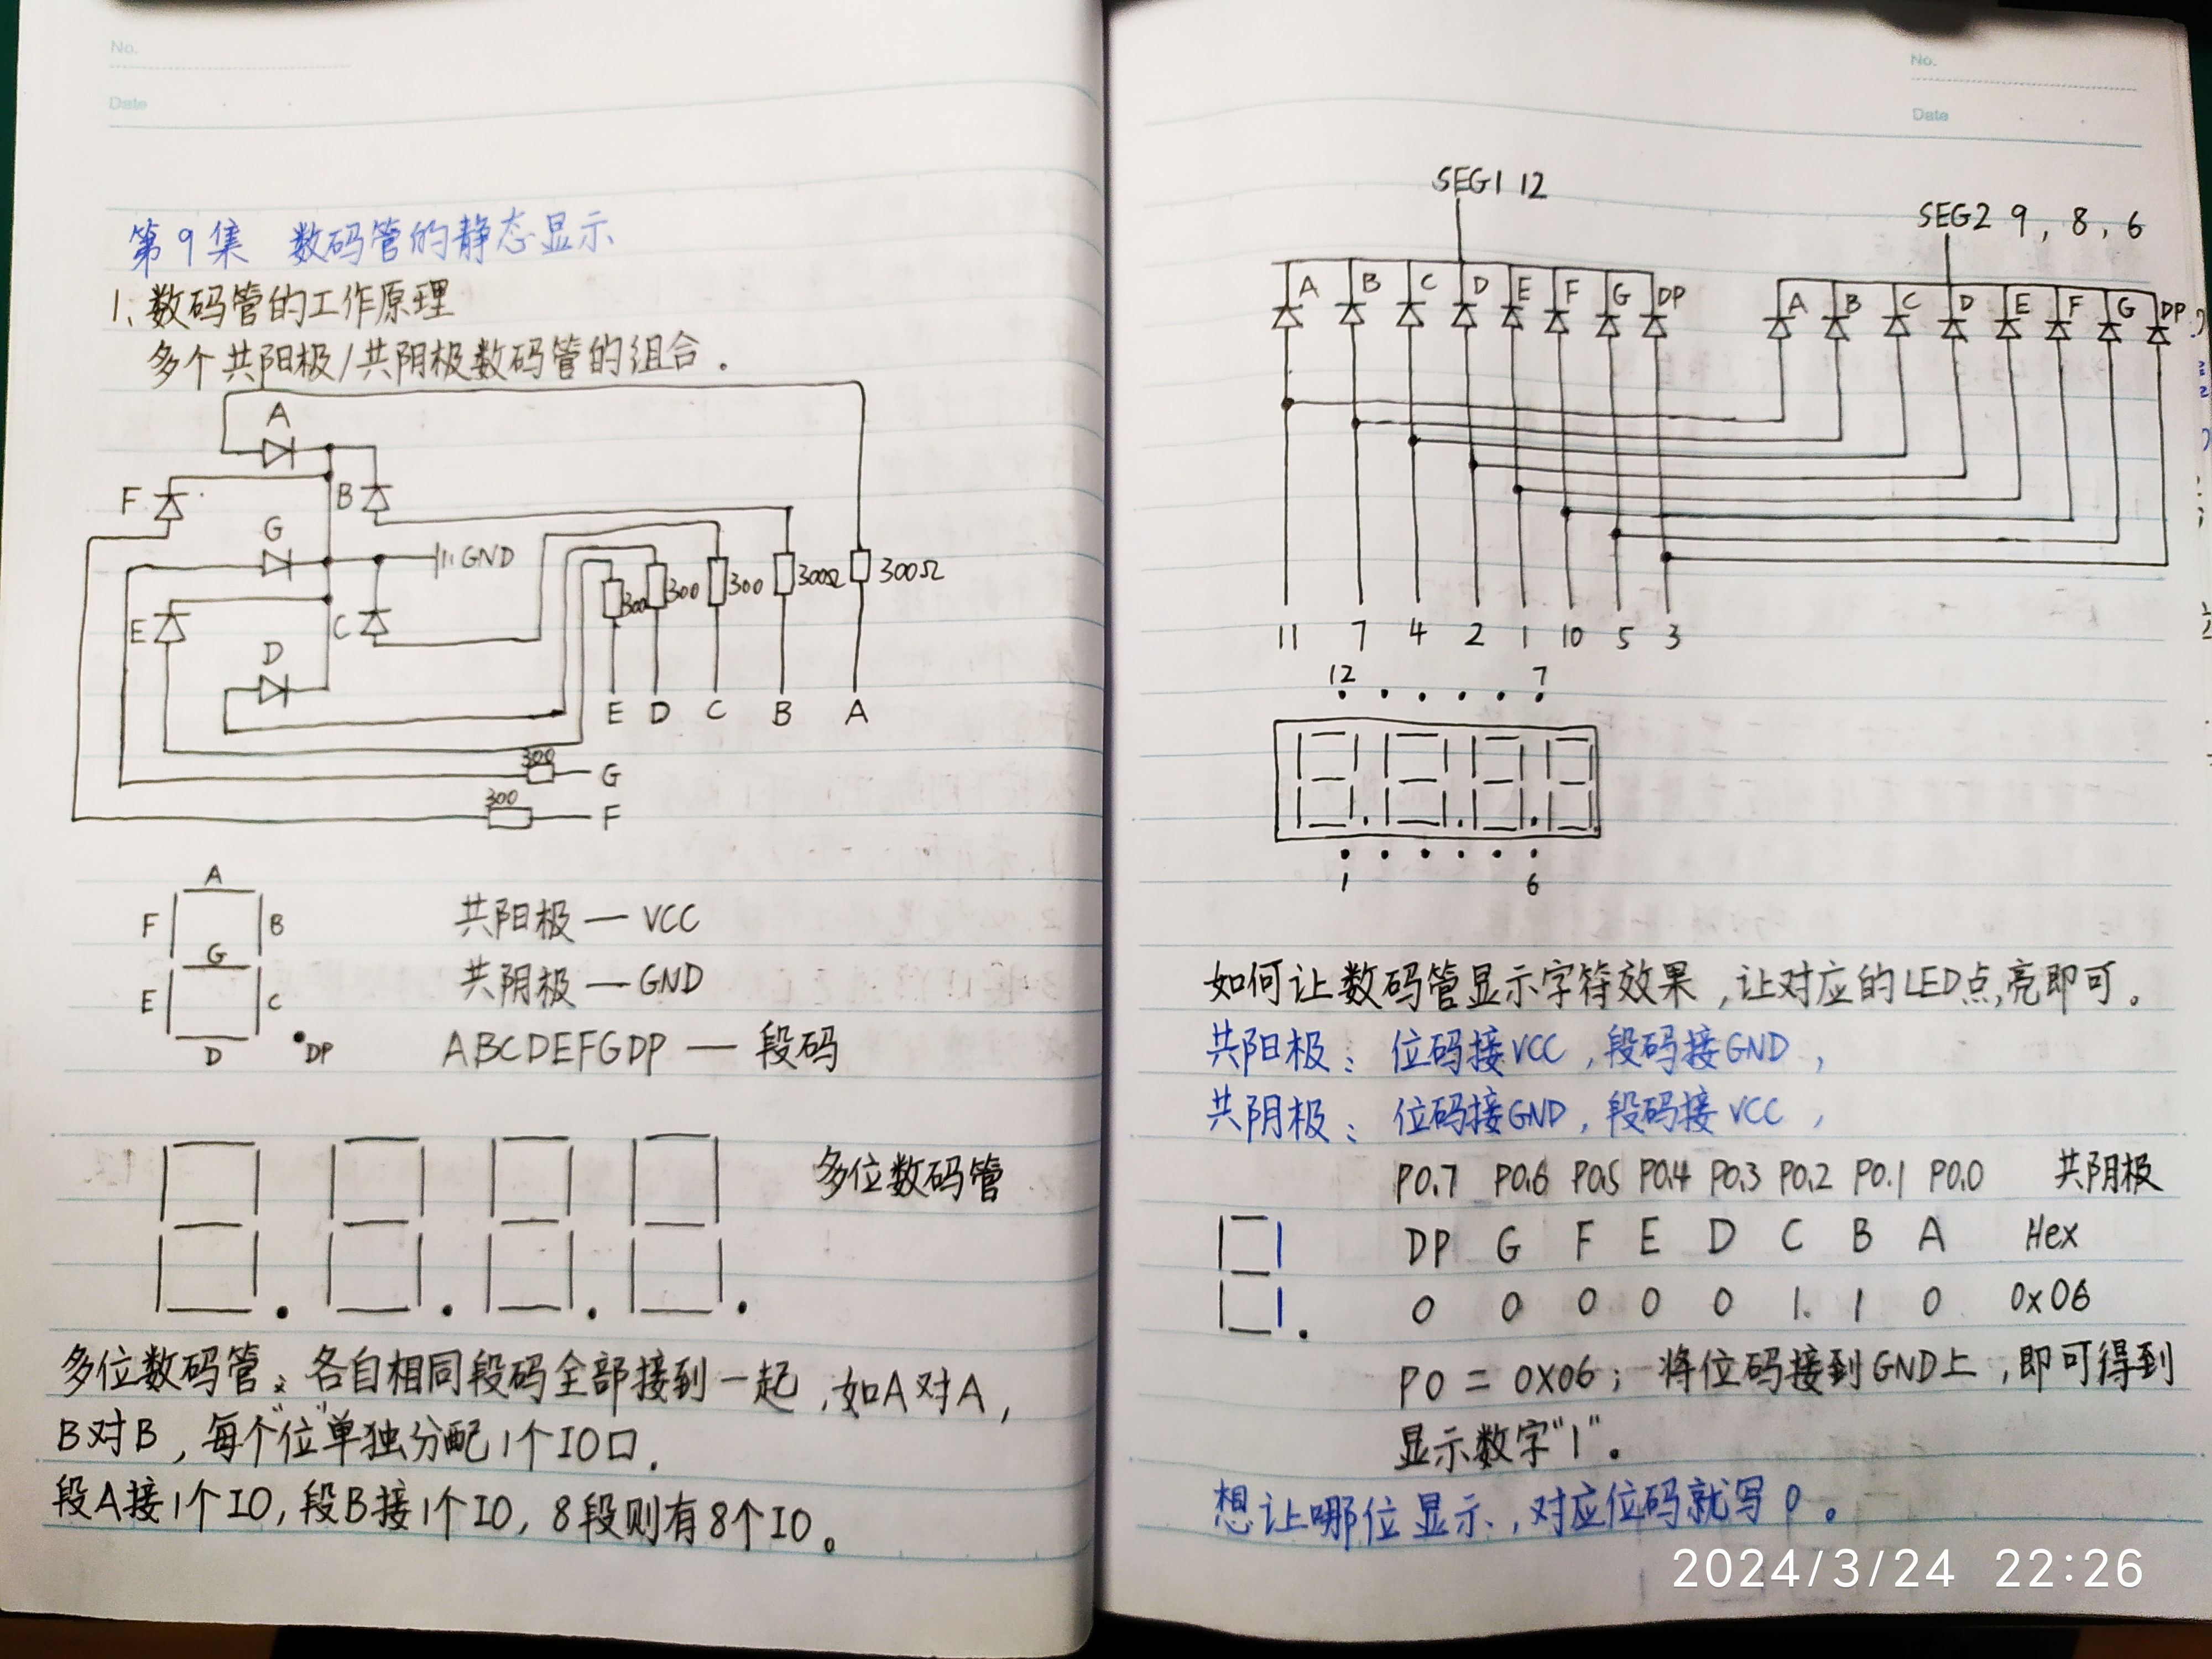 No.
Date
第9集 数码管的静态显示
1、数码管的工作原理
多个共阳极/共阴极数码管的组合.
A
F
B
G
GND
E
C
D
300 300 300 300Ω 300Ω
E D C B A
300 G
300 F
A
F B
G
E C
D DP
共阳极 — VCC
共阴极 — GND
ABCDEFGDP — 段码
多位数码管
多位数码管: 各自相同段码全部接到一起,如A对A,
B对B,每个"位"单独分配1个IO口.
段A接1个IO,段B接1个IO,8段则有8个IO。
No.
Date
SEG1 12
SEG2 9, 8, 6
A B C D E F G DP
A B C D E F G DP
11 7 4 2 1 10 5 3
12 7
1 6
如何让数码管显示字符效果,让对应的LED点亮即可。
共阳极: 位码接VCC,段码接GND,
共阴极: 位码接GND,段码接VCC,
P0.7 P0.6 P0.5 P0.4 P0.3 P0.2 P0.1 P0.0 共阴极
DP G F E D C B A Hex
0 0 0 0 0 1. 1 0 0x06
P0 = 0X06; 将位码接到GND上,即可得到
显示数字"1"。
想让哪位显示,对应位码就写0。
2024/3/24 22:26